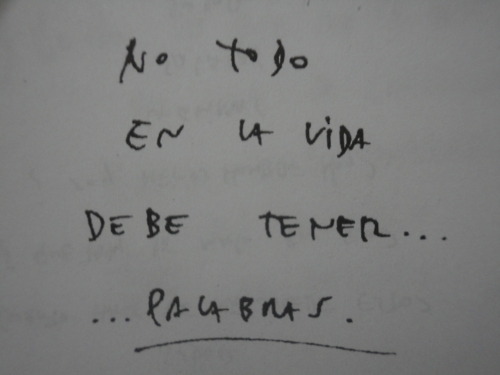 NO TODO
EN LA ViDA
DEBE TENER...
...PALABRAS.